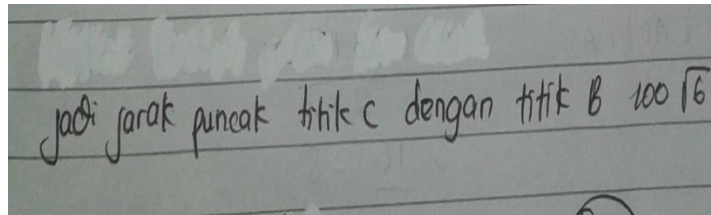 jadi jarak puncak titik C dengan titik B 100 √6